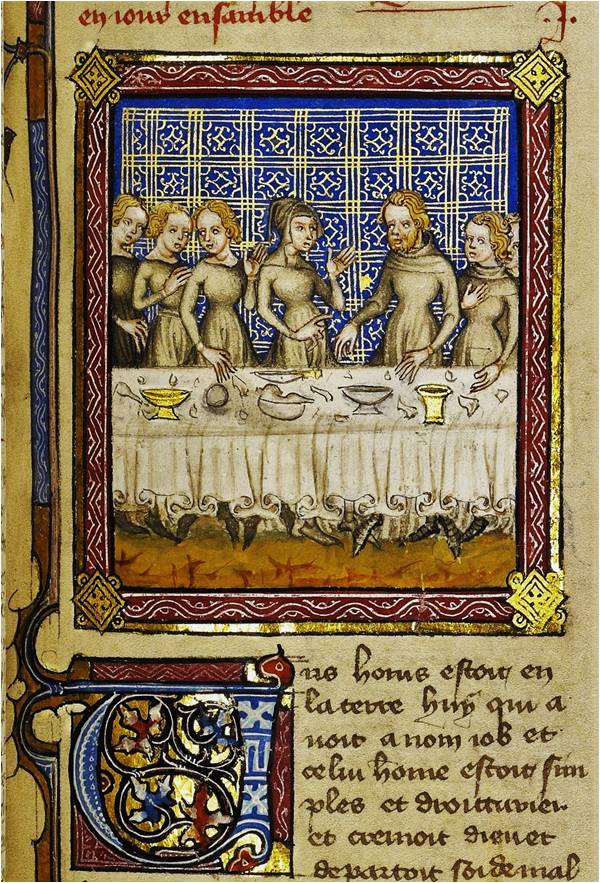 en iour ensamble .I.
Uns homs estoit en
la terre huy qui a
uoit a nom iob et
celui home estoit sim
ples et droitturier
et cremoit dieu et
departoit soi de mal